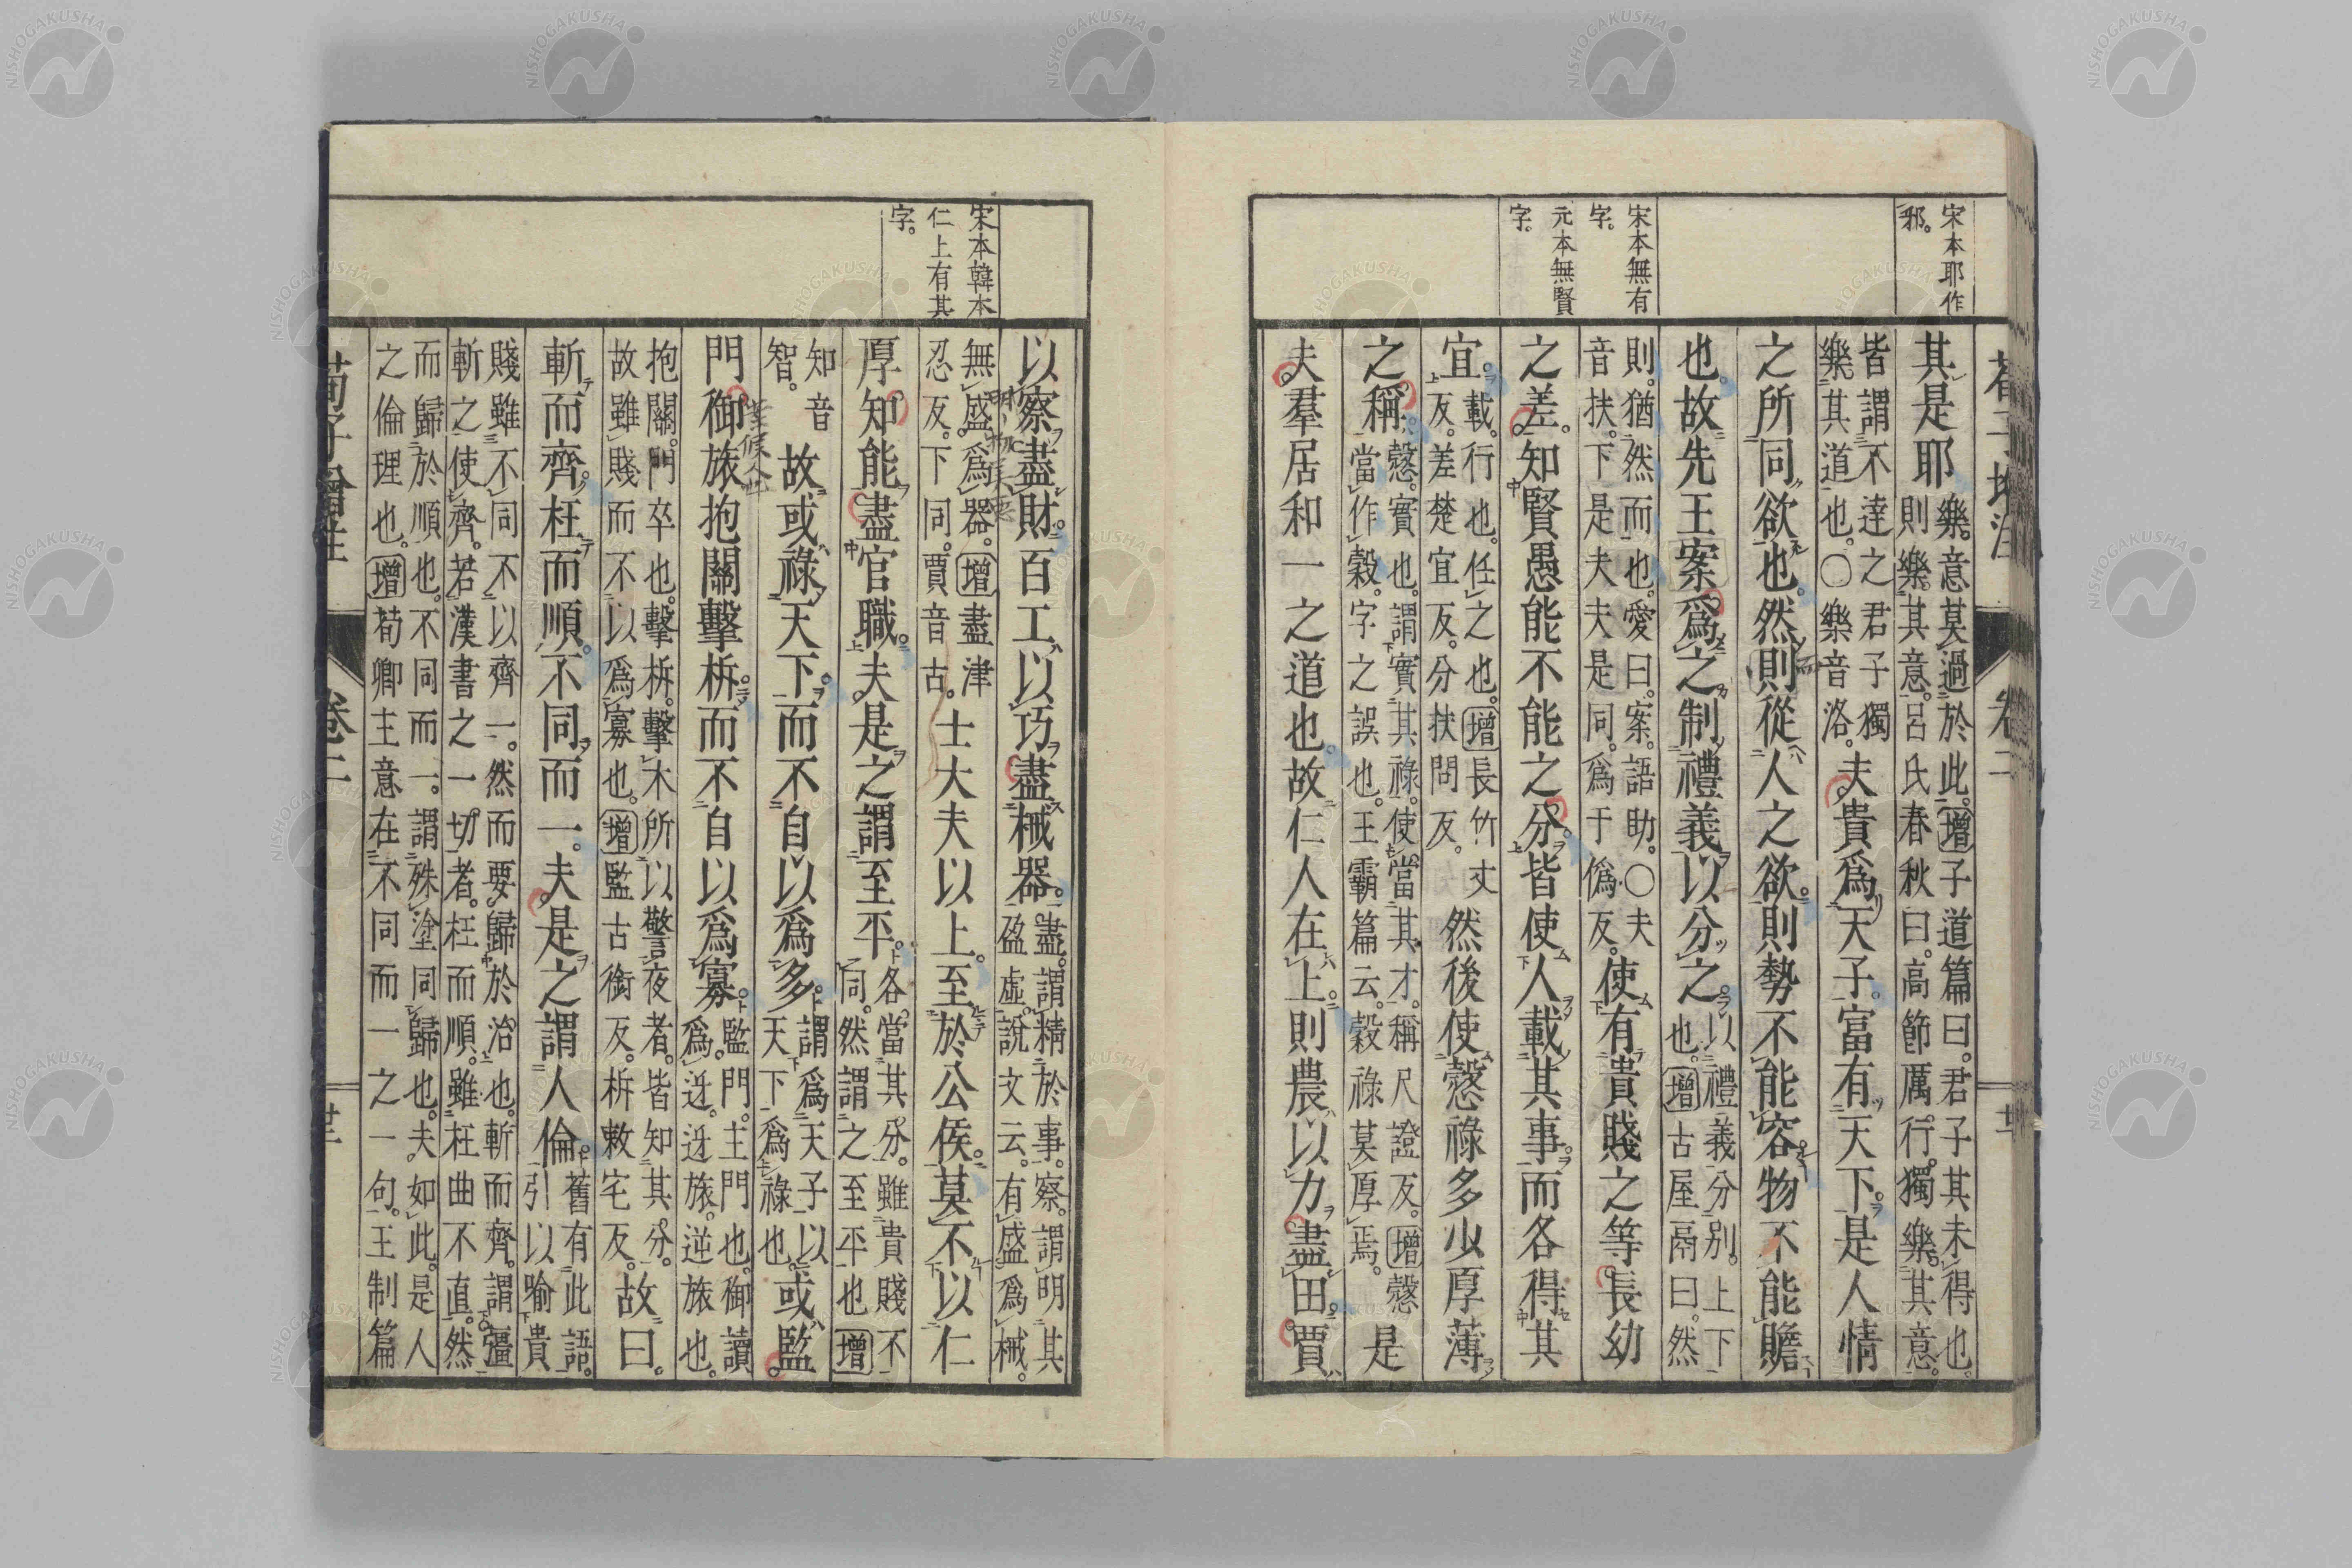 荀子增注
卷二
宋本耶作
邪。
宋本無有
字。
元本無賢
字。
其是耶
樂意莫過於此。增子道篇曰。君子其未得也。
則樂其意。呂氏春秋曰。高節厲行。獨樂其意。
皆謂不達之君子獨
樂其道也。○樂音洛。
夫貴爲天子。富有天下。是人情
之所同欲也。然則從人之欲。則勢不能容。物不能贍
也。故先王案爲之制禮義以分之。
以禮義分別上下
也。增古屋鬲曰。然
則。猶然而也。愛曰。案。語助。○夫
音扶。下是夫夫是同。爲于僞反。
使有貴賤之等。長幼
之差。知賢愚能不能之分。皆使人載其事。而各得其
宜。
載。行也。任之也。增長竹丈
反。差楚宜反。分扶問反。
然後使愨祿多少厚薄
之稱。
愨。實也。謂實其祿。使當其才。稱尺證反。增愨
當作穀。字之誤也。王霸篇云。穀祿莫厚焉。
是
夫羣居和一之道也。故仁人在上。則農以力盡田。賈
宋本韓本
仁上有其
字。
以察盡財。百工以巧盡械器。
盡。謂精於事。察。謂明其
盈虛。說文云。有盛爲械。
無盛爲器。增盡津
忍反。下同。賈音古。
士大夫以上。至於公侯。莫不以仁
厚知能盡官職。夫是之謂至平。
各當其分。雖貴賤不
同。然謂之至平也增
知音
智。
故或祿天下。而不自以爲多。
謂爲天子以
天下爲祿也。
或監
門御旅抱關擊柝。而不自以爲寡。
監門。主門也。御讀
爲迓。迓旅。逆旅也。
抱關。門卒也。擊柝。擊木所以警夜者。皆知其分。
故雖賤而不以爲寡也。增監古銜反。柝敕宅反。
故曰。
斬而齊。枉而順。不同而一。夫是之謂人倫。
舊有此語。
引以喻貴
賤雖不同。不以齊一。然而要歸於治也。斬而齊。謂彊
斬之使齊。若漢書之一切者。枉而順。雖枉曲不直。然
而歸於順也。不同而一。謂殊塗同歸也。夫如此。是人
之倫理也。增荀卿主意在不同而一之一句。王制篇
荀子增注
卷二